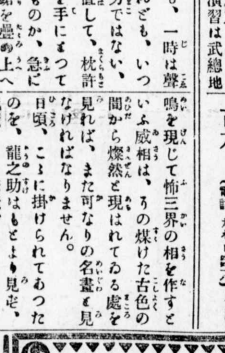 演習は武總地
も、一時は聲
んども、いつ
力ではない、
直して、枕許
を手にもつて
ものか、急に
を疊の上へ
鳴を現じて怖三界の相を作すと
いふ威相は、その煤けた古色の
間から燦然と現はれてゐる處を
見れば、また可なりの名畫と見
なければなりません。
日頃、こゝに掛けられてあつた
のを、龍之助はもとより見ず、